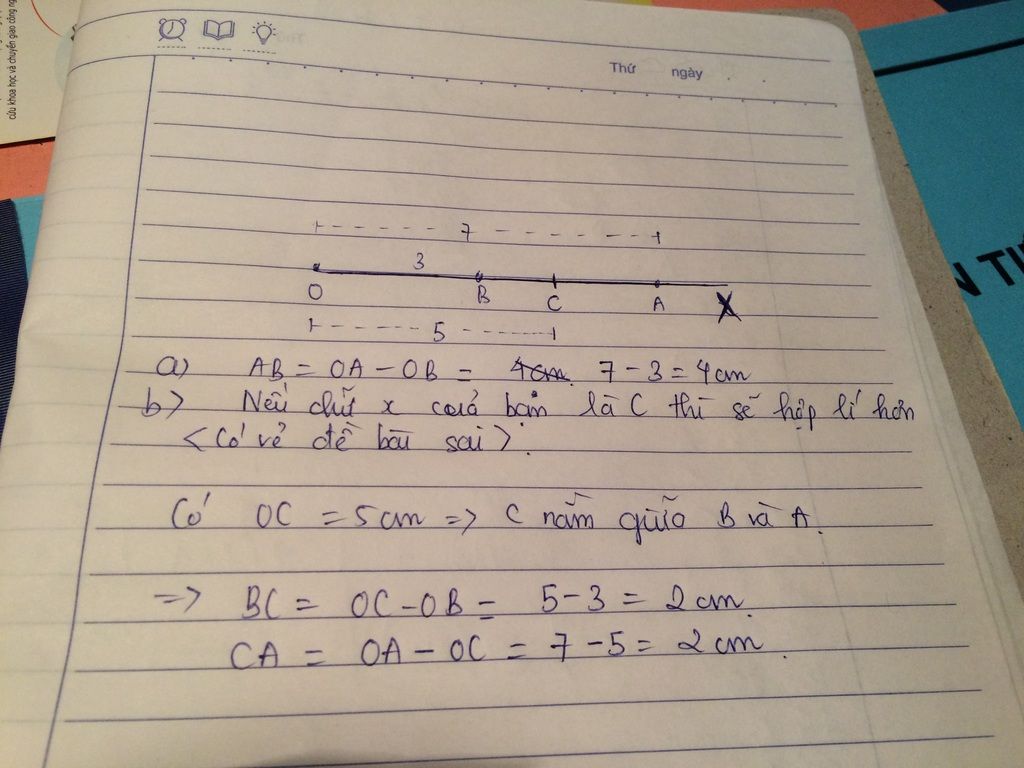 cứu khoa học và chuyển giao công ng
Thứ ngày
7
3
O B C A X
5
a) AB = OA - OB = 4cm. 7 - 3 = 4cm
b> Nếu chữ x cảu bạn là C thì sẽ hợp lí hơn
< Có vẻ đề bài sai >.
Có OC = 5cm => C nằm giữa B và A.
=> BC = OC - OB = 5 - 3 = 2cm.
CA = OA - OC = 7 - 5 = 2cm.